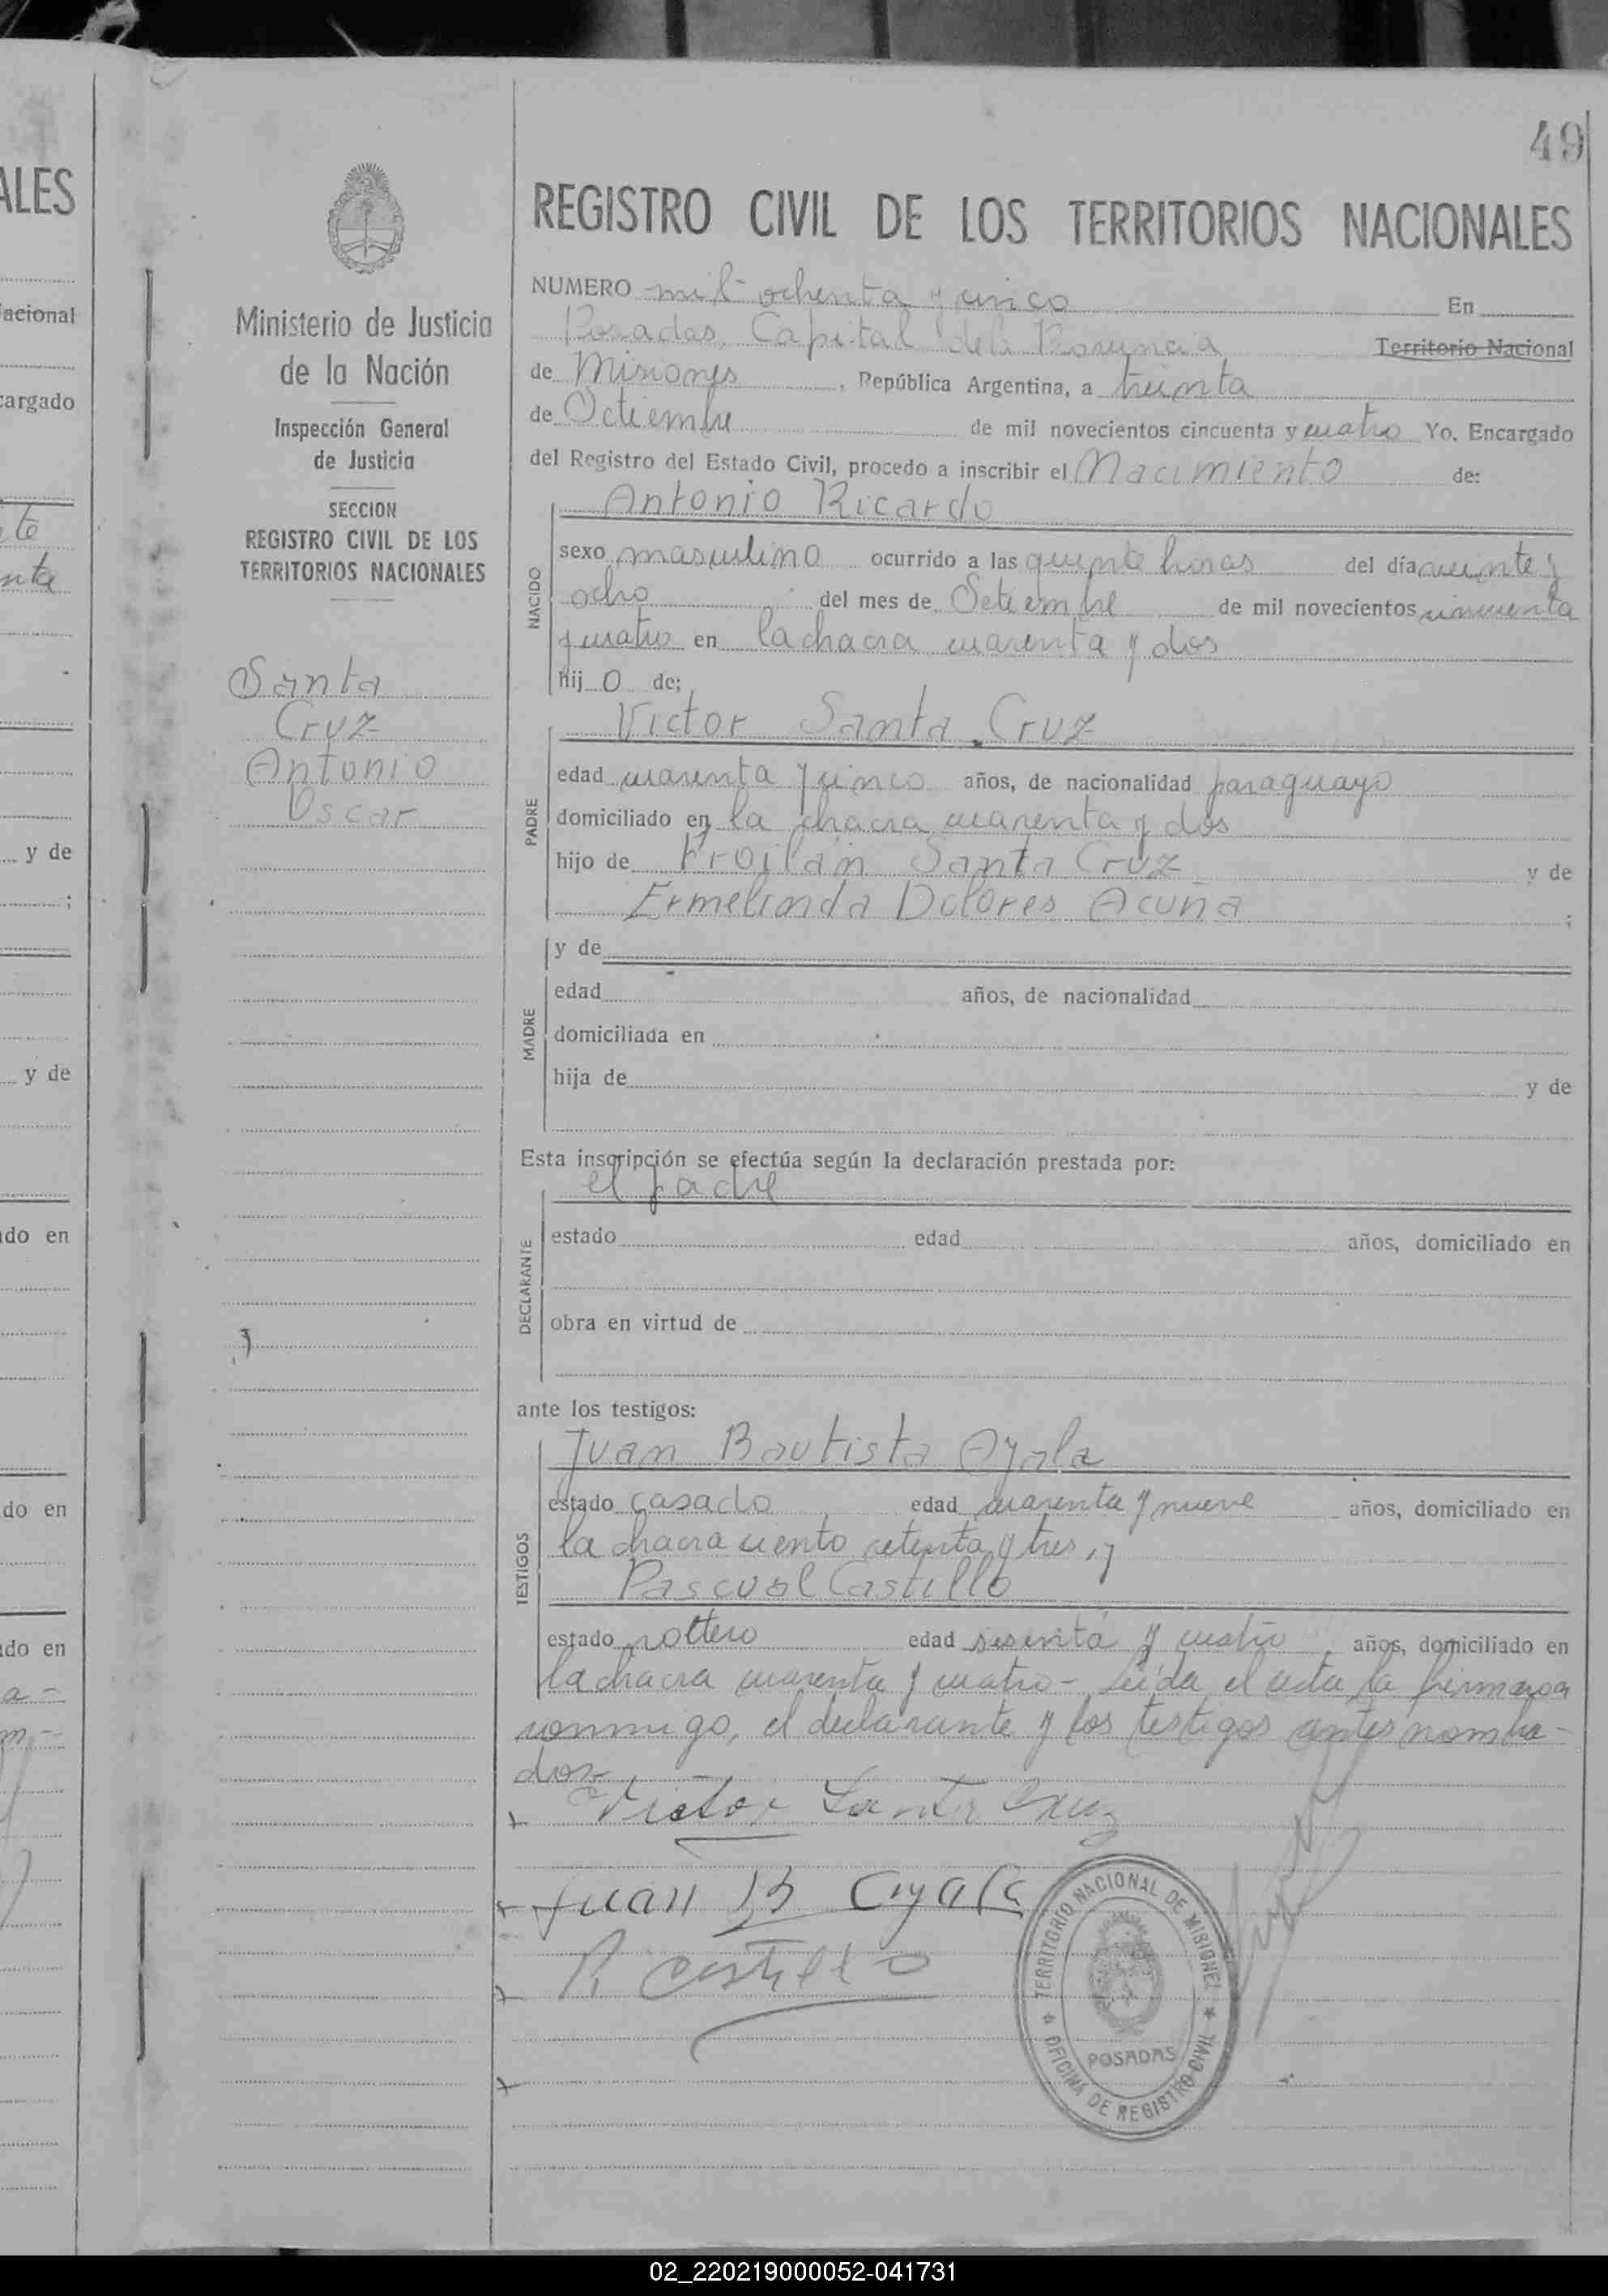 49
ALES
REGISTRO CIVIL DE LOS TERRITORIOS NACIONALES
NUMERO mil ochenta y cinco En
Posadas, Capital de la Provincia Territorio Nacional
de Misiones, República Argentina, a treinta
de Setiembre de mil novecientos cincuenta y cuatro Yo, Encargado
del Registro del Estado Civil, procedo a inscribir el Nacimiento de:
Ministerio de Justicia
de la Nación
Inspección General
de Justicia
SECCION
REGISTRO CIVIL DE LOS
TERRITORIOS NACIONALES
Santa
Cruz
Antonio
Oscar
NACIDO
Antonio Ricardo
sexo masculino ocurrido a las quinte horas del día veinte y
ocho del mes de Setiembre de mil novecientos cincuenta
y cuatro en la chacra cuarenta y dos
hij o de;
PADRE
Victor Santa Cruz
edad cuarenta y cinco años, de nacionalidad paraguayo
domiciliado en la chacra cuarenta y dos
hijo de Froilán Santa Cruz y de
Ermelinda Dolores Acuña ;
MADRE
y de
edad años, de nacionalidad
domiciliada en
hija de y de
Esta inscripción se efectúa según la declaración prestada por:
el padre
DECLARANTE
estado edad años, domiciliado en
obra en virtud de
ante los testigos:
TESTIGOS
Juan Bautista Ayala
estado casado edad cuarenta y nueve años, domiciliado en
la chacra ciento setenta y tres, y
Pascual Castillo
estado soltero edad sesenta y cuatro años, domiciliado en
la chacra cuarenta y cuatro - Leída el acta la firmaron
conmigo, el declarante y los testigos antes nombra-
dos-
Victor Santa Cruz
Juan B Ayala
P. Castillo
TERRITORIO NACIONAL DE MISIONES
POSADAS
OFICINA DE REGISTRO CIVIL
acional
cargado
te
nta
y de
y de
do en
do en
do en
a -
m -
02_220219000052-041731